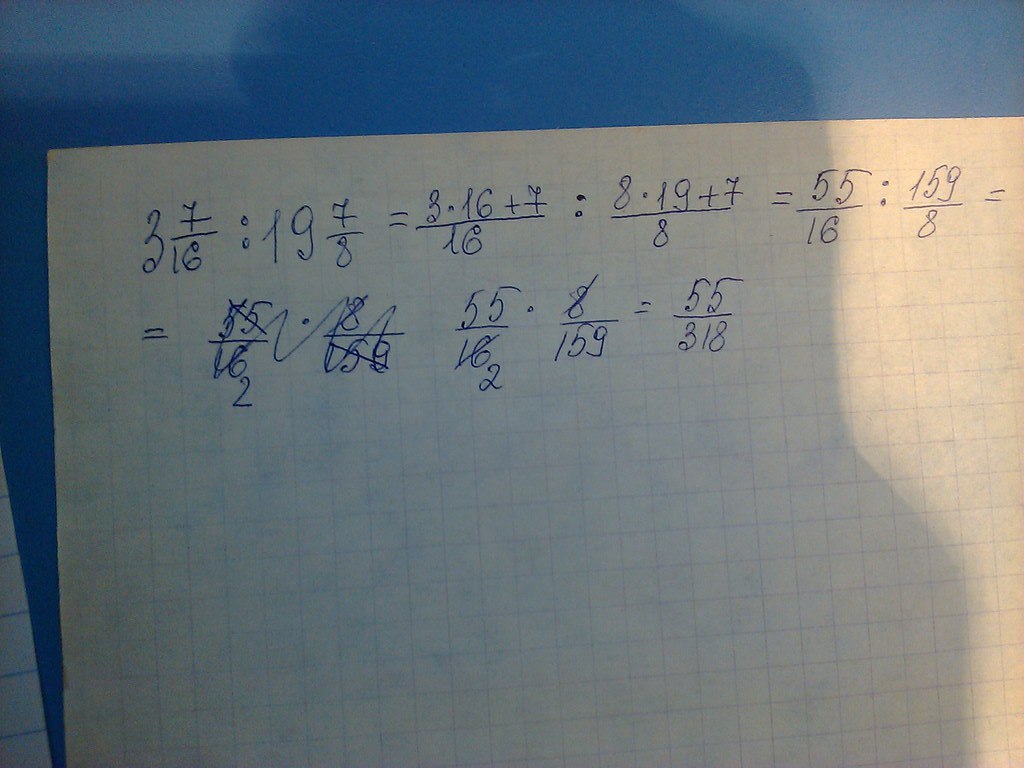 3 7/16 : 19 7/8 = (3·16+7)/16 : (8·19+7)/8 = 55/16 : 159/8 =
= 55/16 · 8/159 55/16 2 · 8/159 = 55/318
2